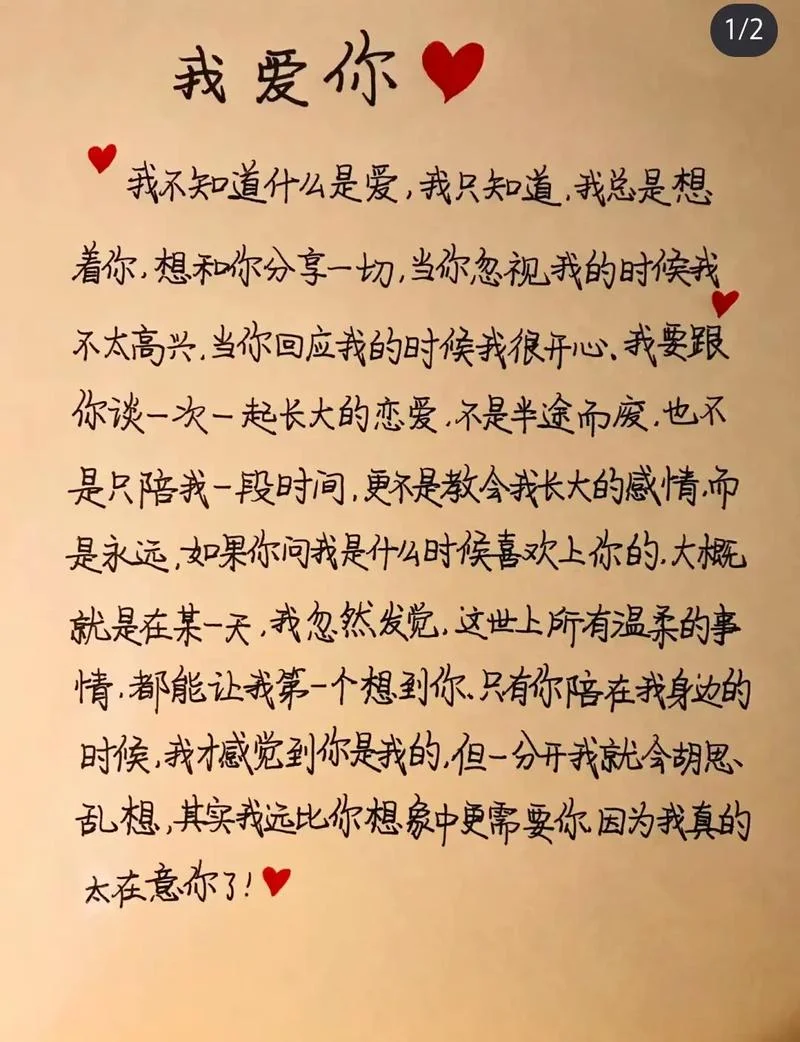 1/2
我爱你
我不知道什么是爱,我只知道,我总是想
着你,想和你分享一切,当你忽视我的时候我
不太高兴,当你回应我的时候我很开心、我要跟
你谈一次一起长大的恋爱,不是半途而废,也不
是只陪我一段时间,更不是教会我长大的感情,而
是永远,如果你问我是什么时候喜欢上你的,大概
就是在某一天,我忽然发觉,这世上所有温柔的事
情,都能让我第一个想到你、只有你陪在我身边的
时候,我才感觉到你是我的,但一分开我就会胡思、
乱想,其实我远比你想象中更需要你,因为我真的
太在意你了!